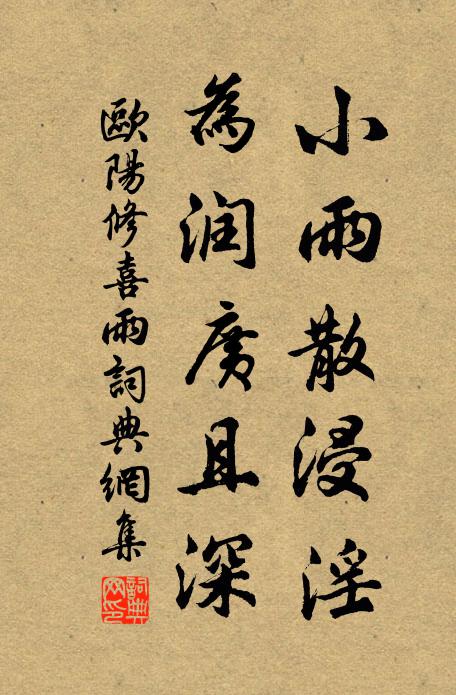 小雨散浸淫
為润廣且深
歐陽修喜雨詞典網集
詞典網印